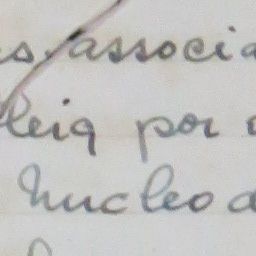 s associa
leia por
Nucleo d